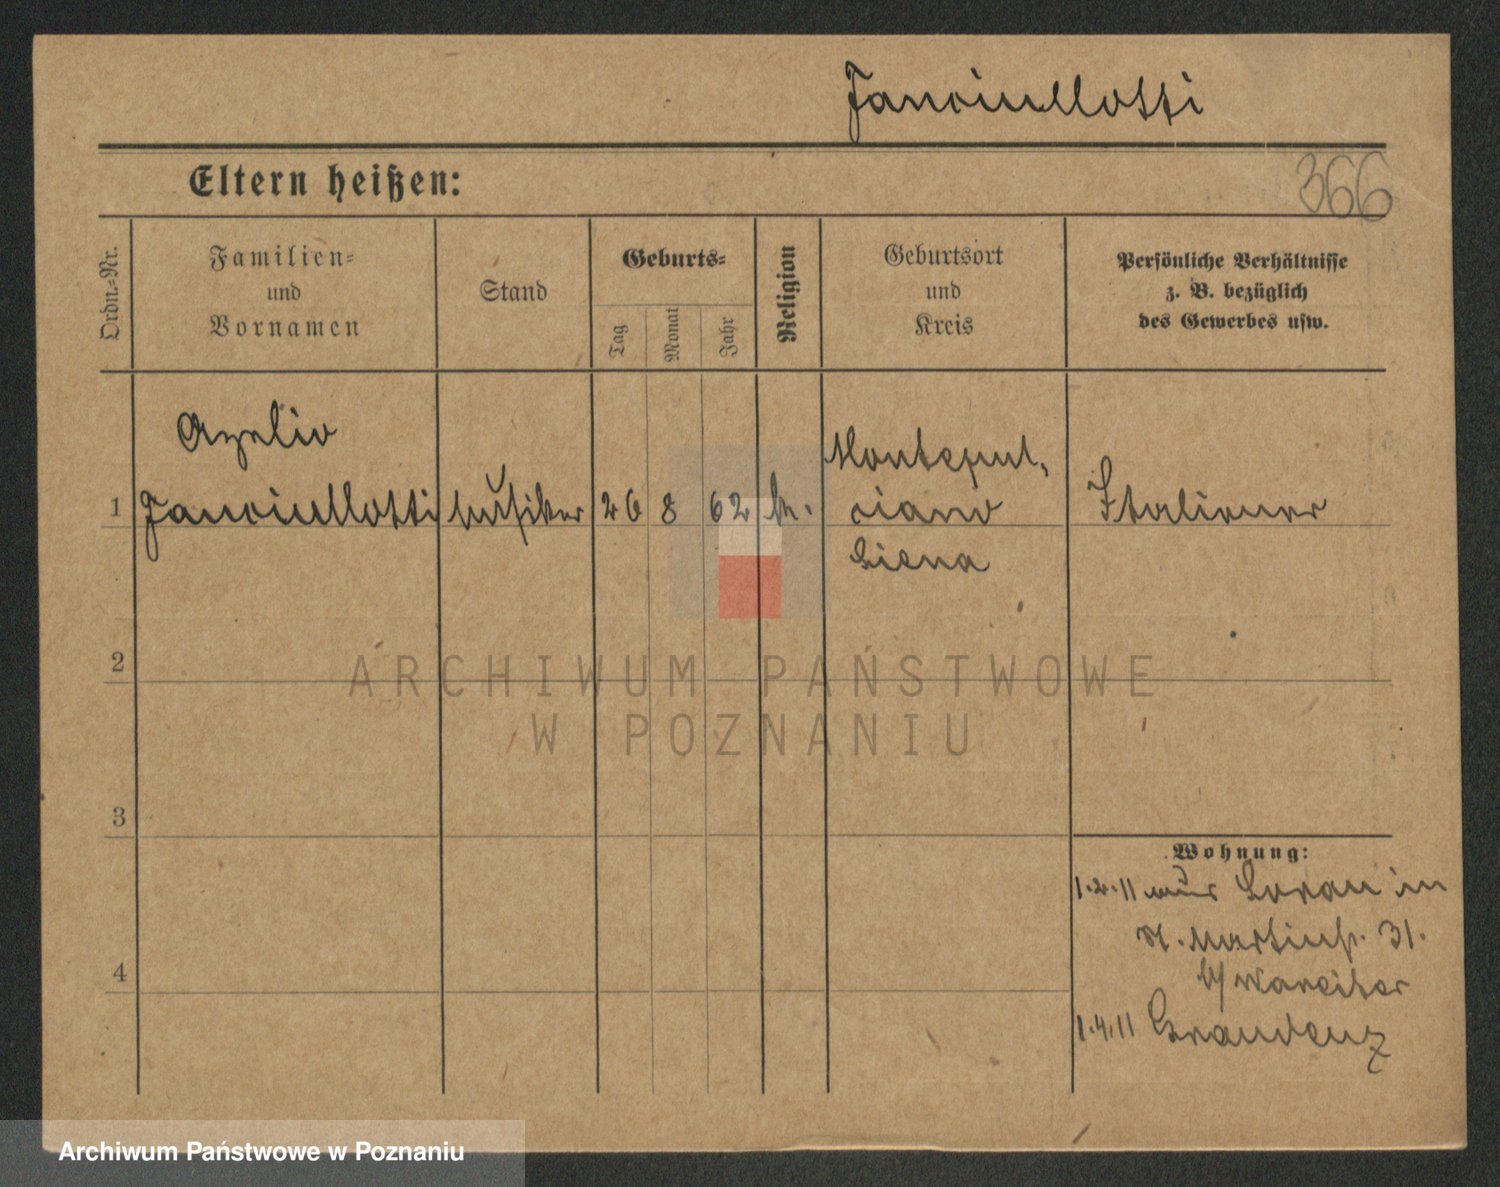 Fanciullotti
366
Eltern heißen:
Ordn.-Nr.
Familien-
und
Vornamen
Stand
Geburts-
Tag
Monat
Jahr
Religion
Geburtsort
und
Kreis
Persönliche Verhältnisse
z. B. bezüglich
des Gewerbes usw.
Azelio
1 Fanciullotti Musiker 26 8 62 k. Montepul-
ciano
Siena
Italiener
2
3
4
Wohnung:
1.2.11 aus Soran in
St. Martinstr. 31.
b/
1.4.11 Graudenz
ARCHIWUM PAŃSTWOWE
W POZNANIU
Archiwum Państwowe w Poznaniu